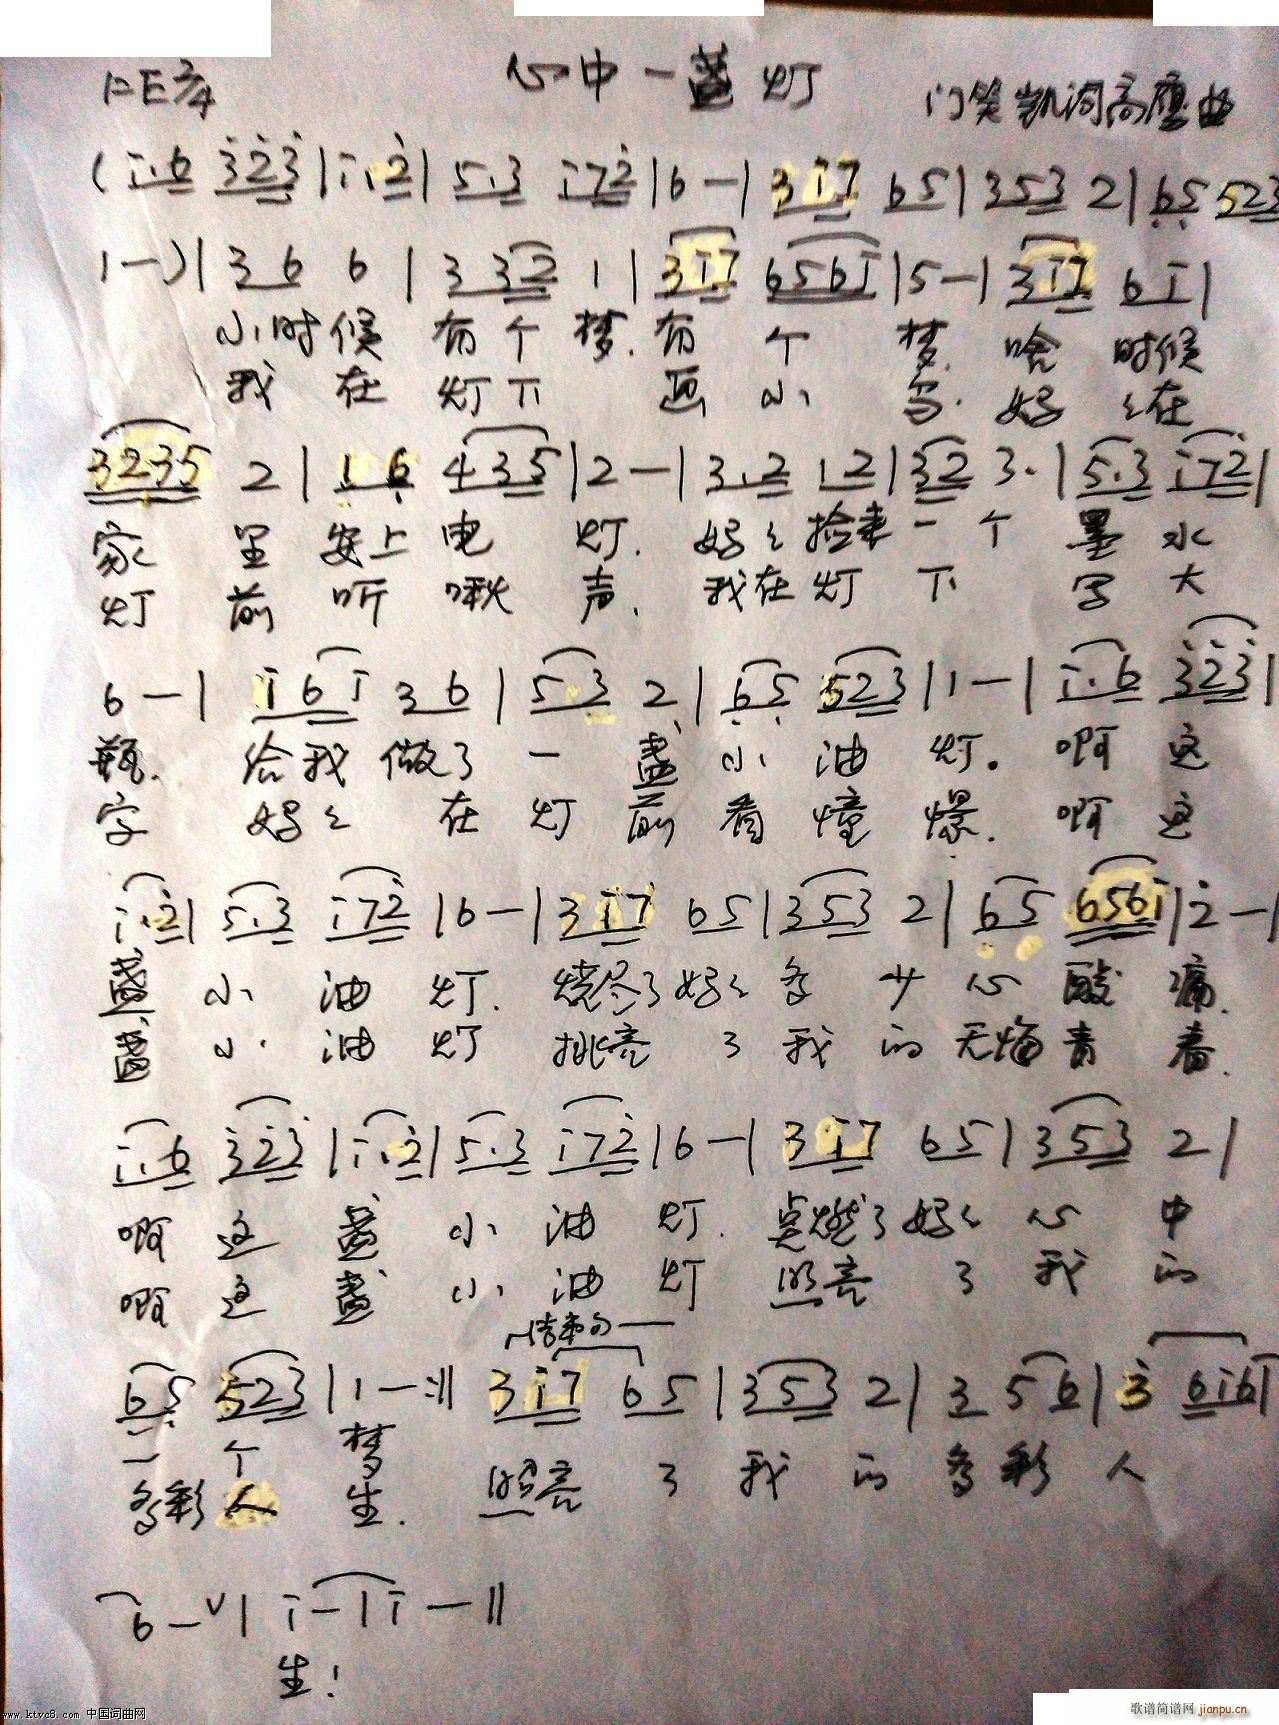 心中一盏灯
1=E 2/4
门笑凯词高鹰曲
(i.6 3 2 3|i.2|5.3 i 7 2|6 —|3 i 7 6 5|3 5 3 2|6 5 5 2 3
1 —)|3 6 6|3 3 2 1|3 i 7 6 5 6 i|5 —|3 i 7 6 i|
小时候 有个梦.有个梦.啥时候
我在灯下 画小鸟.妈妈在
3 2 3 5 2|1 6 4 3 5|2 —|3.2 1 2|3 2 3.|5.3 i 7 2|
家里安上电灯.妈妈捡来一个墨水
灯前听啾声.我在灯下写大
6 —|i 6 i 3 6|5.3 2|6 5 5 2 3|1 —|i.6 3 2 3|
瓶.给我做了一盏小油灯.啊这
字 妈妈在灯前看憧憬.啊这
i.2|5.3 i 7 2|6 —|3 i 7 6 5|3 5 3 2|6 5 6 5 6 i|2 —|
盏小油灯.烧尽了妈妈多少心酸痛.
盏小油灯 挑亮了我的无悔青春.
i.6 3 2 3|i.2|5.3 i 7 2|6 —|3 i 7 6 5|3 5 3 2|
啊这盏小油灯.点燃了妈妈心中
啊这盏小油灯 照亮了我的
结束句
6 5 5 2 3|1 —:‖ 3 i 7 6 5|3 5 3 2|3 5 6|3 6 i 6|
一个梦
多彩人生.照亮了我的多彩人
6 — ∨|i —|i —‖
生!
www.ktvc8.com 中国词曲网
歌谱简谱网 jianpu.cn